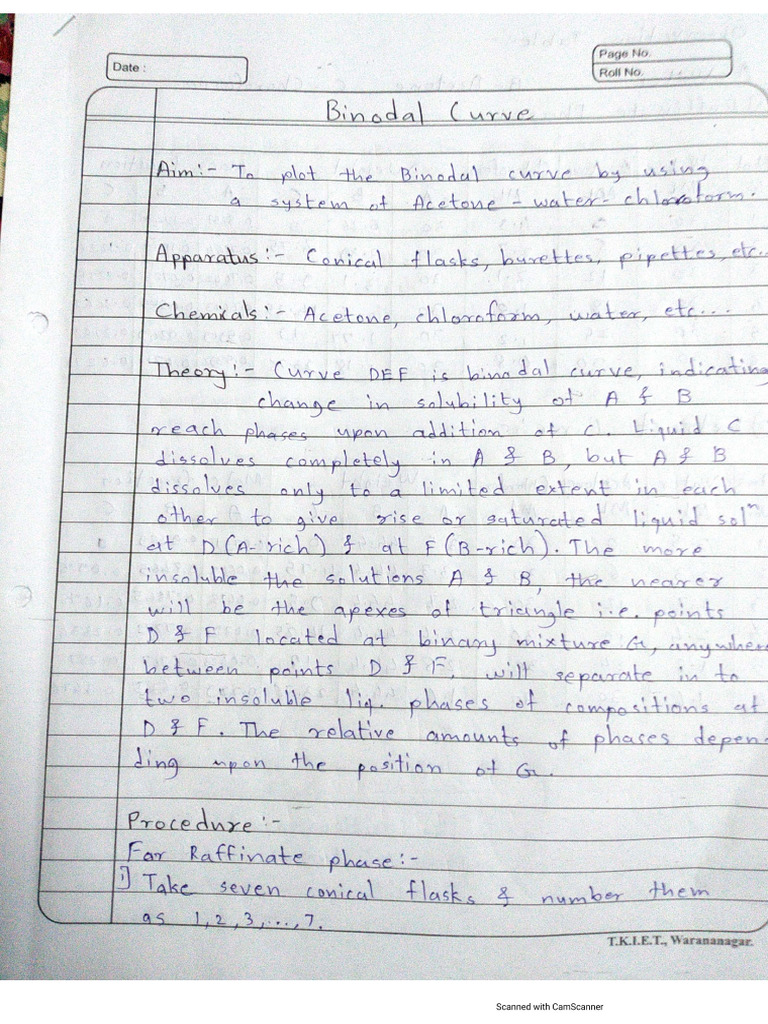 Date :
Page No.
Roll No.
Binodal Curve
Aim:- To plot the Binodal curve by using
a system of Acetone - water - chloroform.
Apparatus:- Conical flasks, burettes, pipettes, etc..
Chemicals:- Acetone, chloroform, water, etc....
Theory:- Curve DEF is binodal curve, indicating
change in solubility of A & B
reach phases upon addition of C. Liquid C
dissolves completely in A & B, but A & B
dissolves only to a limited extent in each
other to give rise or saturated liquid solⁿ
at D (A-rich) & at F (B-rich). The more
insoluble the solutions A & B, the nearer
will be the apexes of triangle i.e. points
D & F located at binary mixture G, anywhere
between points D & F, will separate in to
two insoluble liq. phases of compositions at
D & F. The relative amounts of phases depen-
ding upon the position of G.
Procedure:-
For Raffinate phase:-
1) Take seven conical flasks & number them
as 1, 2, 3, ..., 7.
T.K.I.E.T., Warananagar.
Scanned with CamScanner